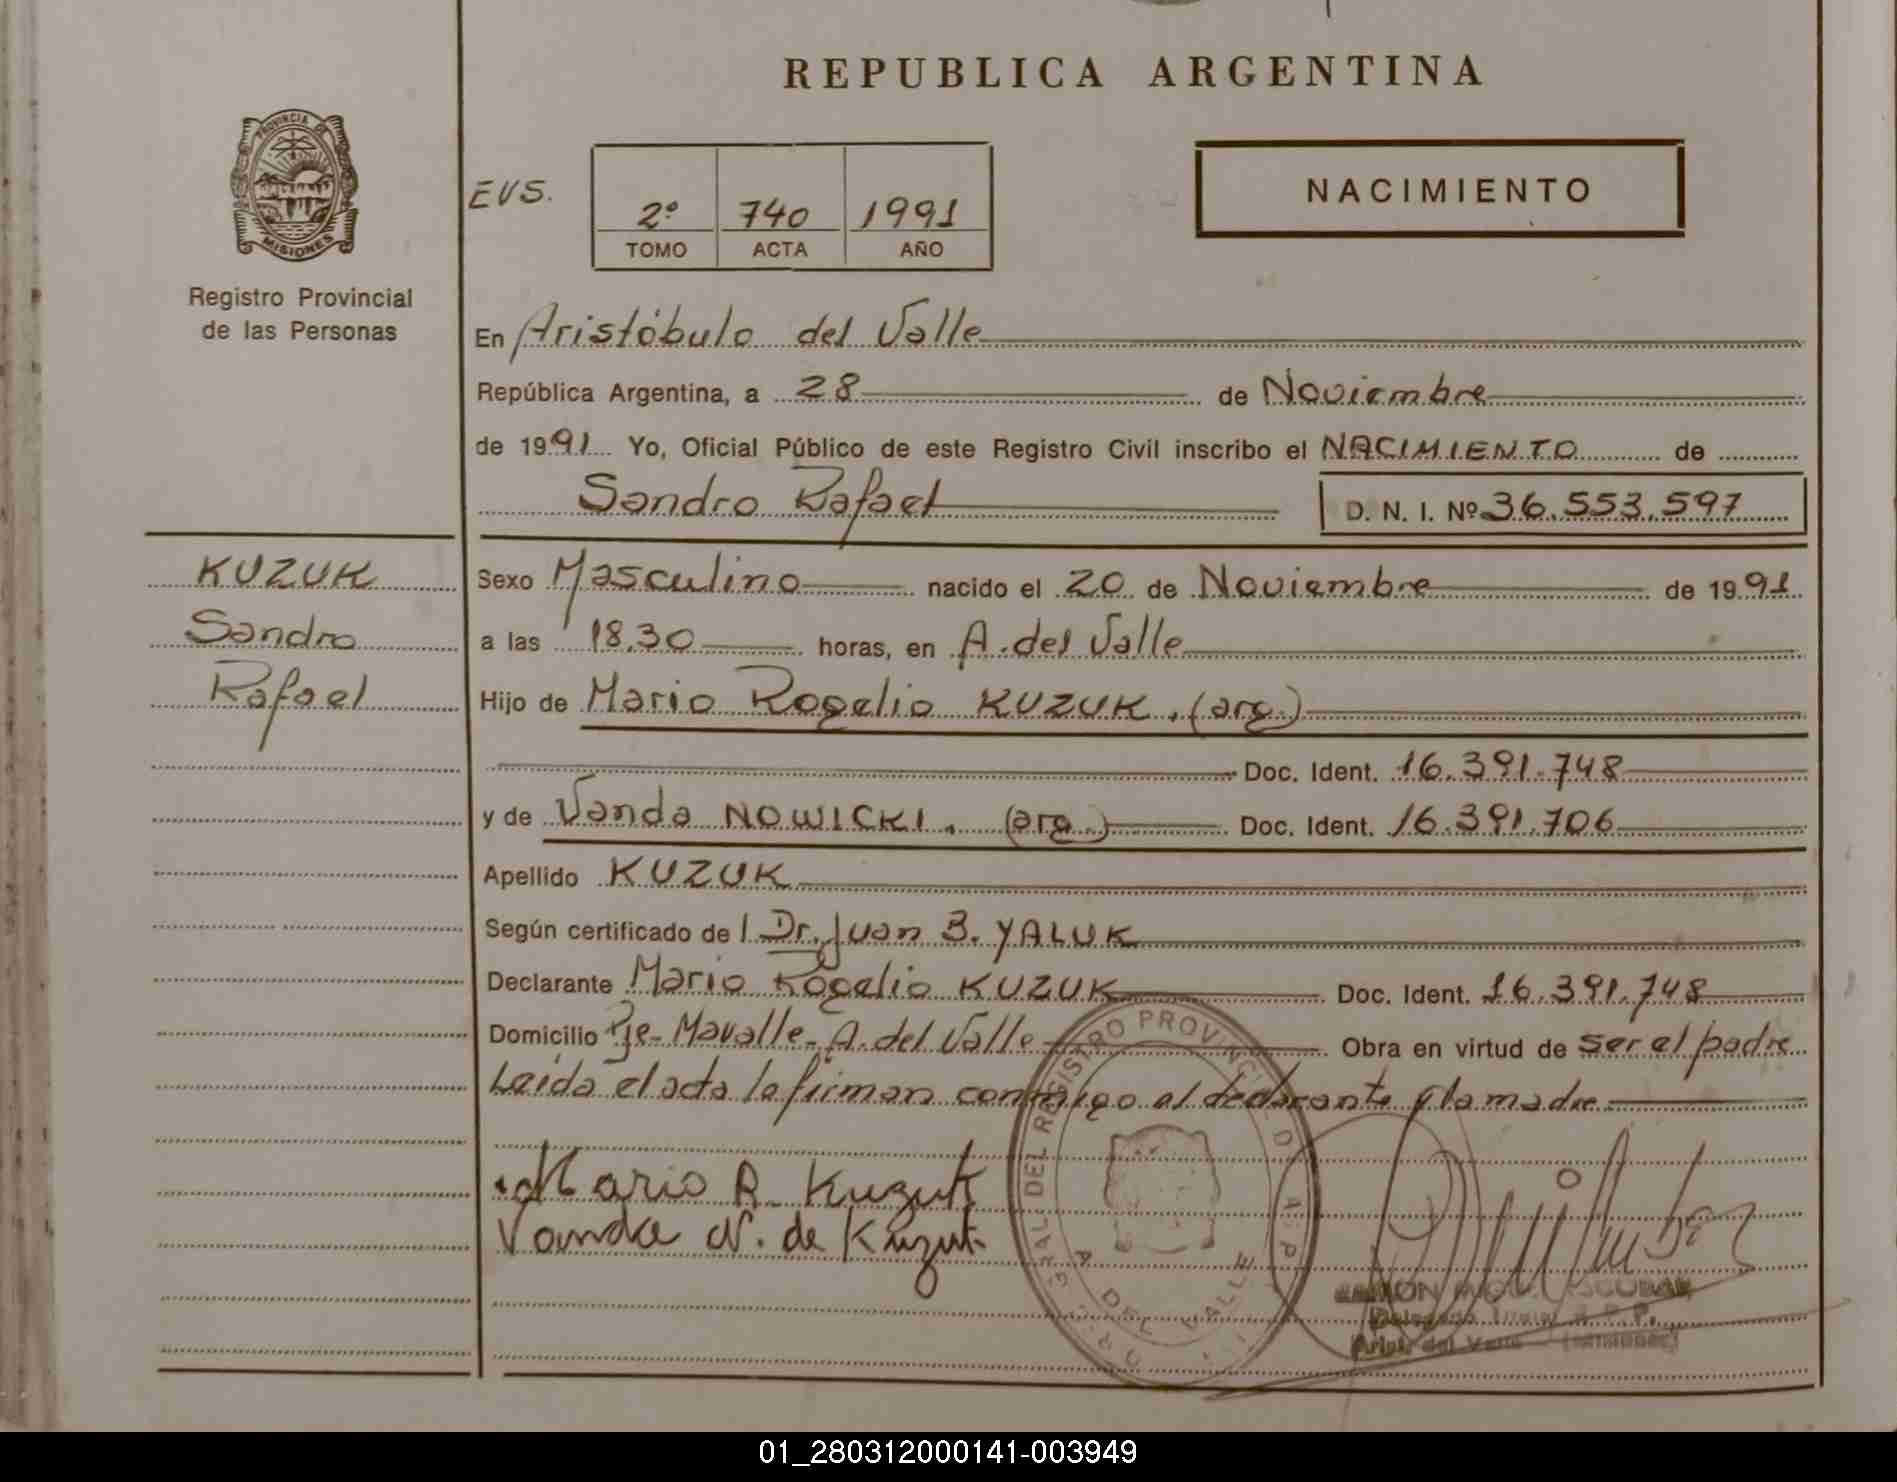 REPUBLICA ARGENTINA
PROVINCIA DE
MISIONES
Registro Provincial
de las Personas
EVS.
2º 740 1991
TOMO ACTA AÑO
NACIMIENTO
En Aristóbulo del Valle
República Argentina, a 28 de Noviembre
de 1991 Yo, Oficial Público de este Registro Civil inscribo el NACIMIENTO de
Sandro Rafael D. N. I. Nº 36.553.597
KUZUK
Sandro
Rafael
Sexo Masculino nacido el 20 de Noviembre de 1991
a las 18.30 horas, en A. del Valle
Hijo de Mario Rogelio KUZUK. (arg.)
Doc. Ident. 16.391.748
y de Vanda NOWICKI. (arg.) Doc. Ident. 16.391.706
Apellido KUZUK
Según certificado de l Dr. Juan B. YALUK
Declarante Mario Rogelio KUZUK Doc. Ident. 16.391.748
Domicilio Pje- Mavalle- A. del Valle Obra en virtud de ser el padre
Leída el acta la firman conmigo el declarante y la madre
Mario R. Kuzuk
Vanda N. de Kuzuk
DEL REGISTRO PROVINCIAL DE
A DEL VALLE
ESCOBAR
Delegado R. P. P.
Arist. del Valle (Misiones)
01_280312000141-003949